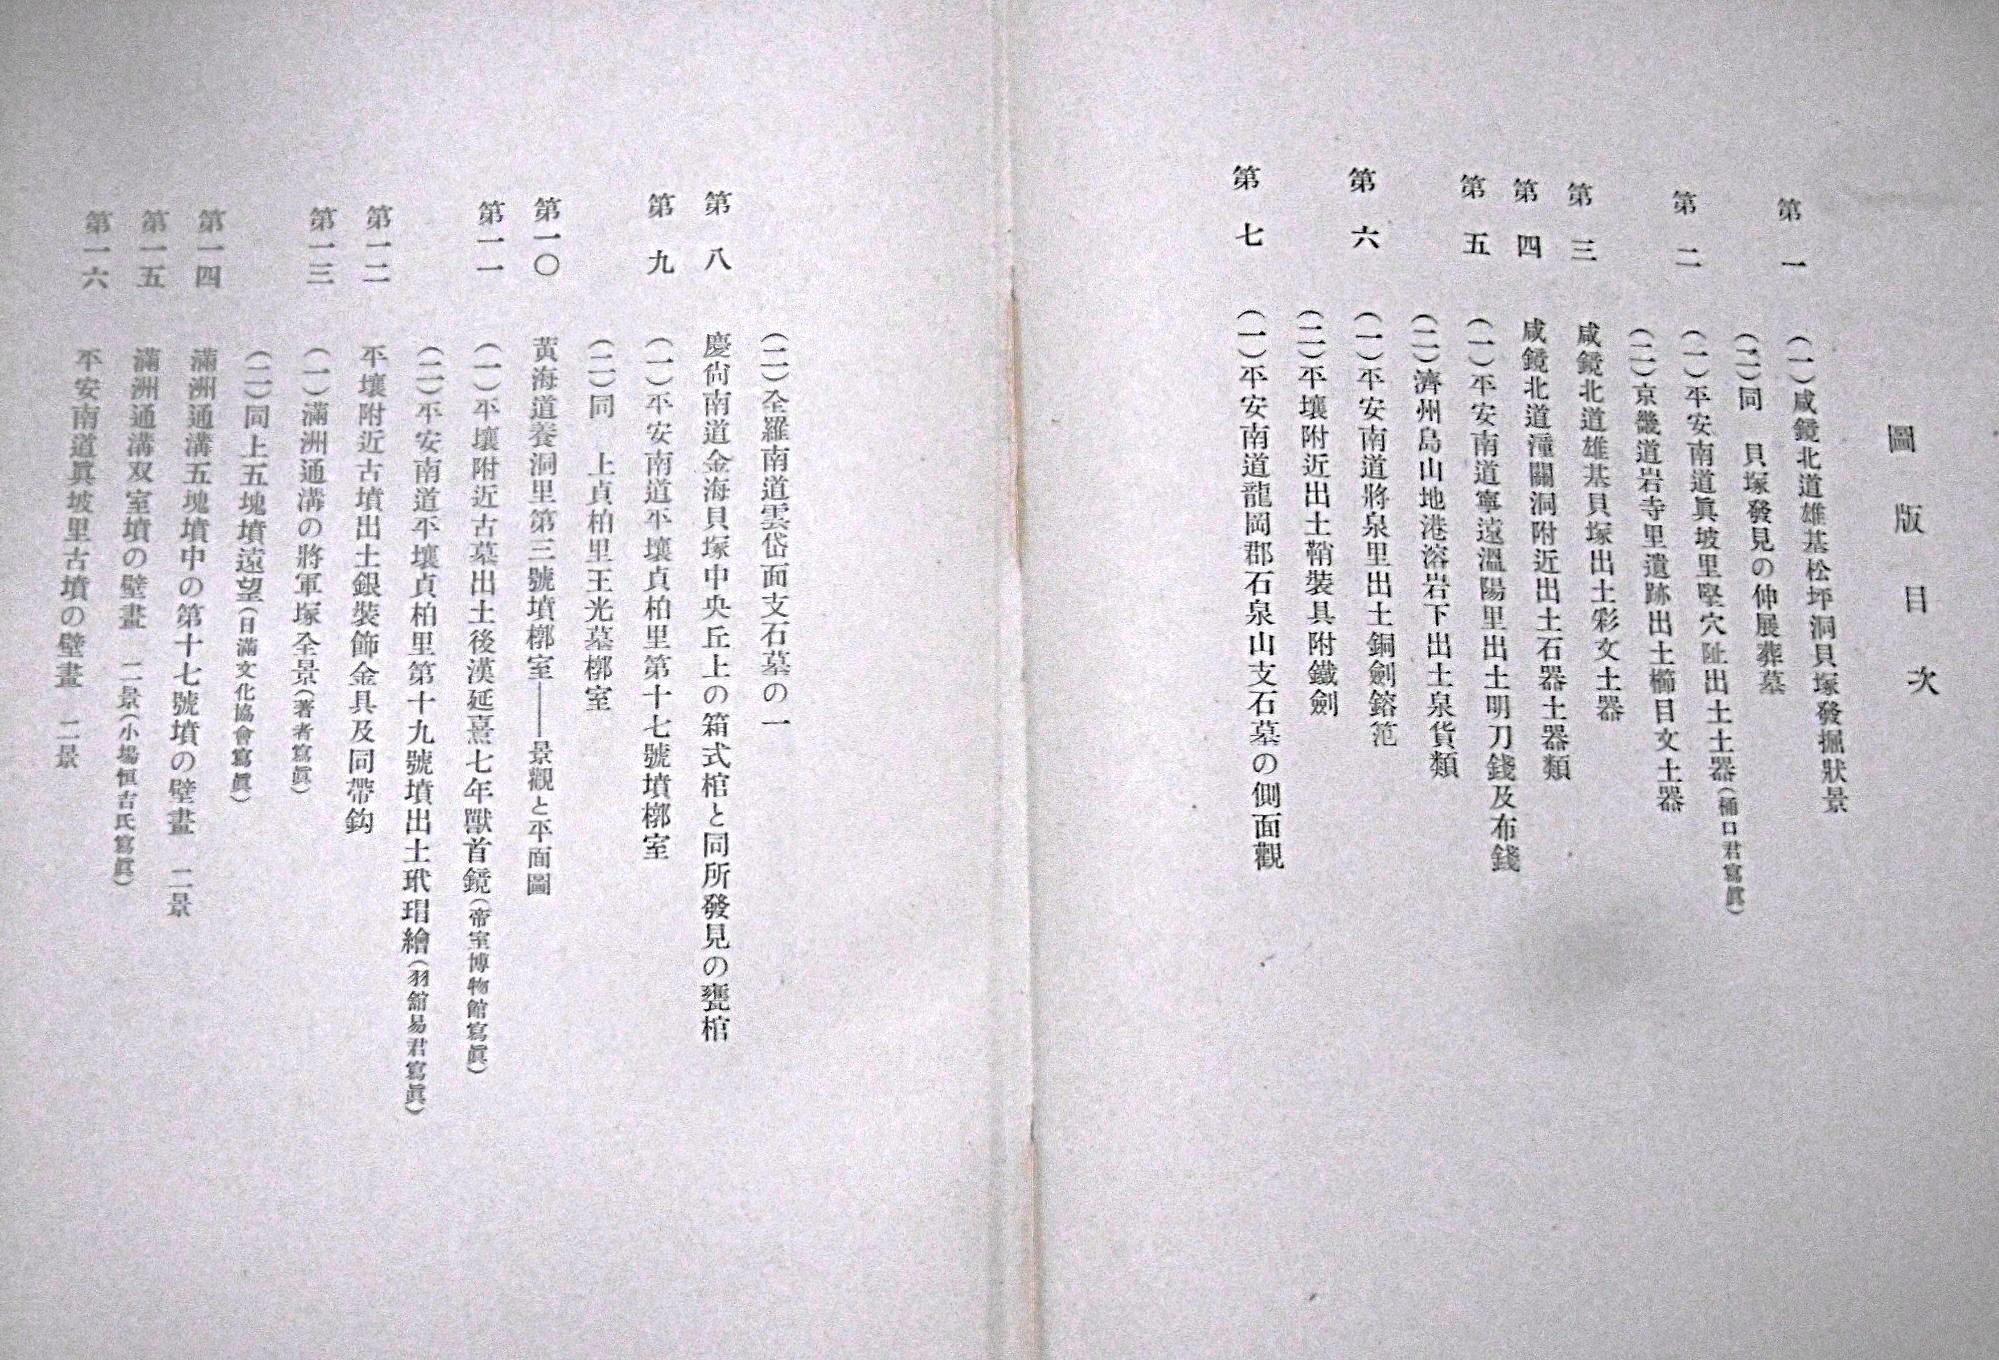 圖版目次
第一 (一)咸鏡北道雄基松坪洞貝塚發掘狀景
(二)同 貝塚發見の伸展葬墓
第二 (一)平安南道眞坡里竪穴阯出土土器(桶口君寫眞)
(二)京畿道岩寺里遺跡出土櫛目文土器
第三 咸鏡北道雄基貝塚出土彩文土器
第四 咸鏡北道潼關洞附近出土石器土器類
第五 (一)平安南道寧遠溫陽里出土明刀錢及布錢
(二)濟州島山地港溶岩下出土泉貨類
第六 (一)平安南道將泉里出土銅劍鎔范
(二)平壤附近出土鞘裝具附鐵劍
第七 (一)平安南道龍岡郡石泉山支石墓の側面觀
(二)全羅南道雲岱面支石墓の一
第八 慶尙南道金海貝塚中央丘上の箱式棺と同所發見の甕棺
第九 (一)平安南道平壤貞柏里第十七號墳槨室
(二)同 上貞柏里王光墓槨室
第一〇 黃海道養洞里第三號墳槨室——景觀と平面圖
第一一 (一)平壤附近古墓出土後漢延熹七年獸首鏡(帝室博物館寫眞)
(二)平安南道平壤貞柏里第十九號墳出土玳瑁繪(羽舘易君寫眞)
第一二 平壤附近古墳出土銀裝飾金具及同帶鈎
第一三 (一)滿洲通溝の將軍塚全景(著者寫眞)
(二)同上五塊墳遠望(日滿文化協會寫眞)
第一四 滿洲通溝五塊墳中の第十七號墳の壁畫 二景
第一五 滿洲通溝双室墳の壁畫 二景(小場恒吉氏寫眞)
第一六 平安南道眞坡里古墳の壁畫 二景